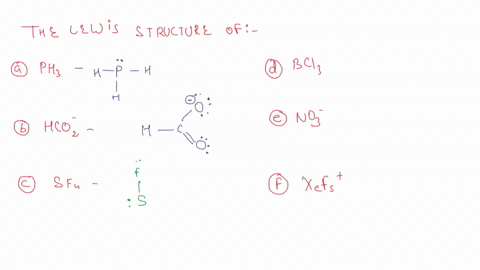 THE LEWIS STRUCTURE OF:-
a PH3 - H-P-H
H
b HCO2- - H-C
O
O
c SF4 - F
S
d BCl3
e NO3-
f XeF5+